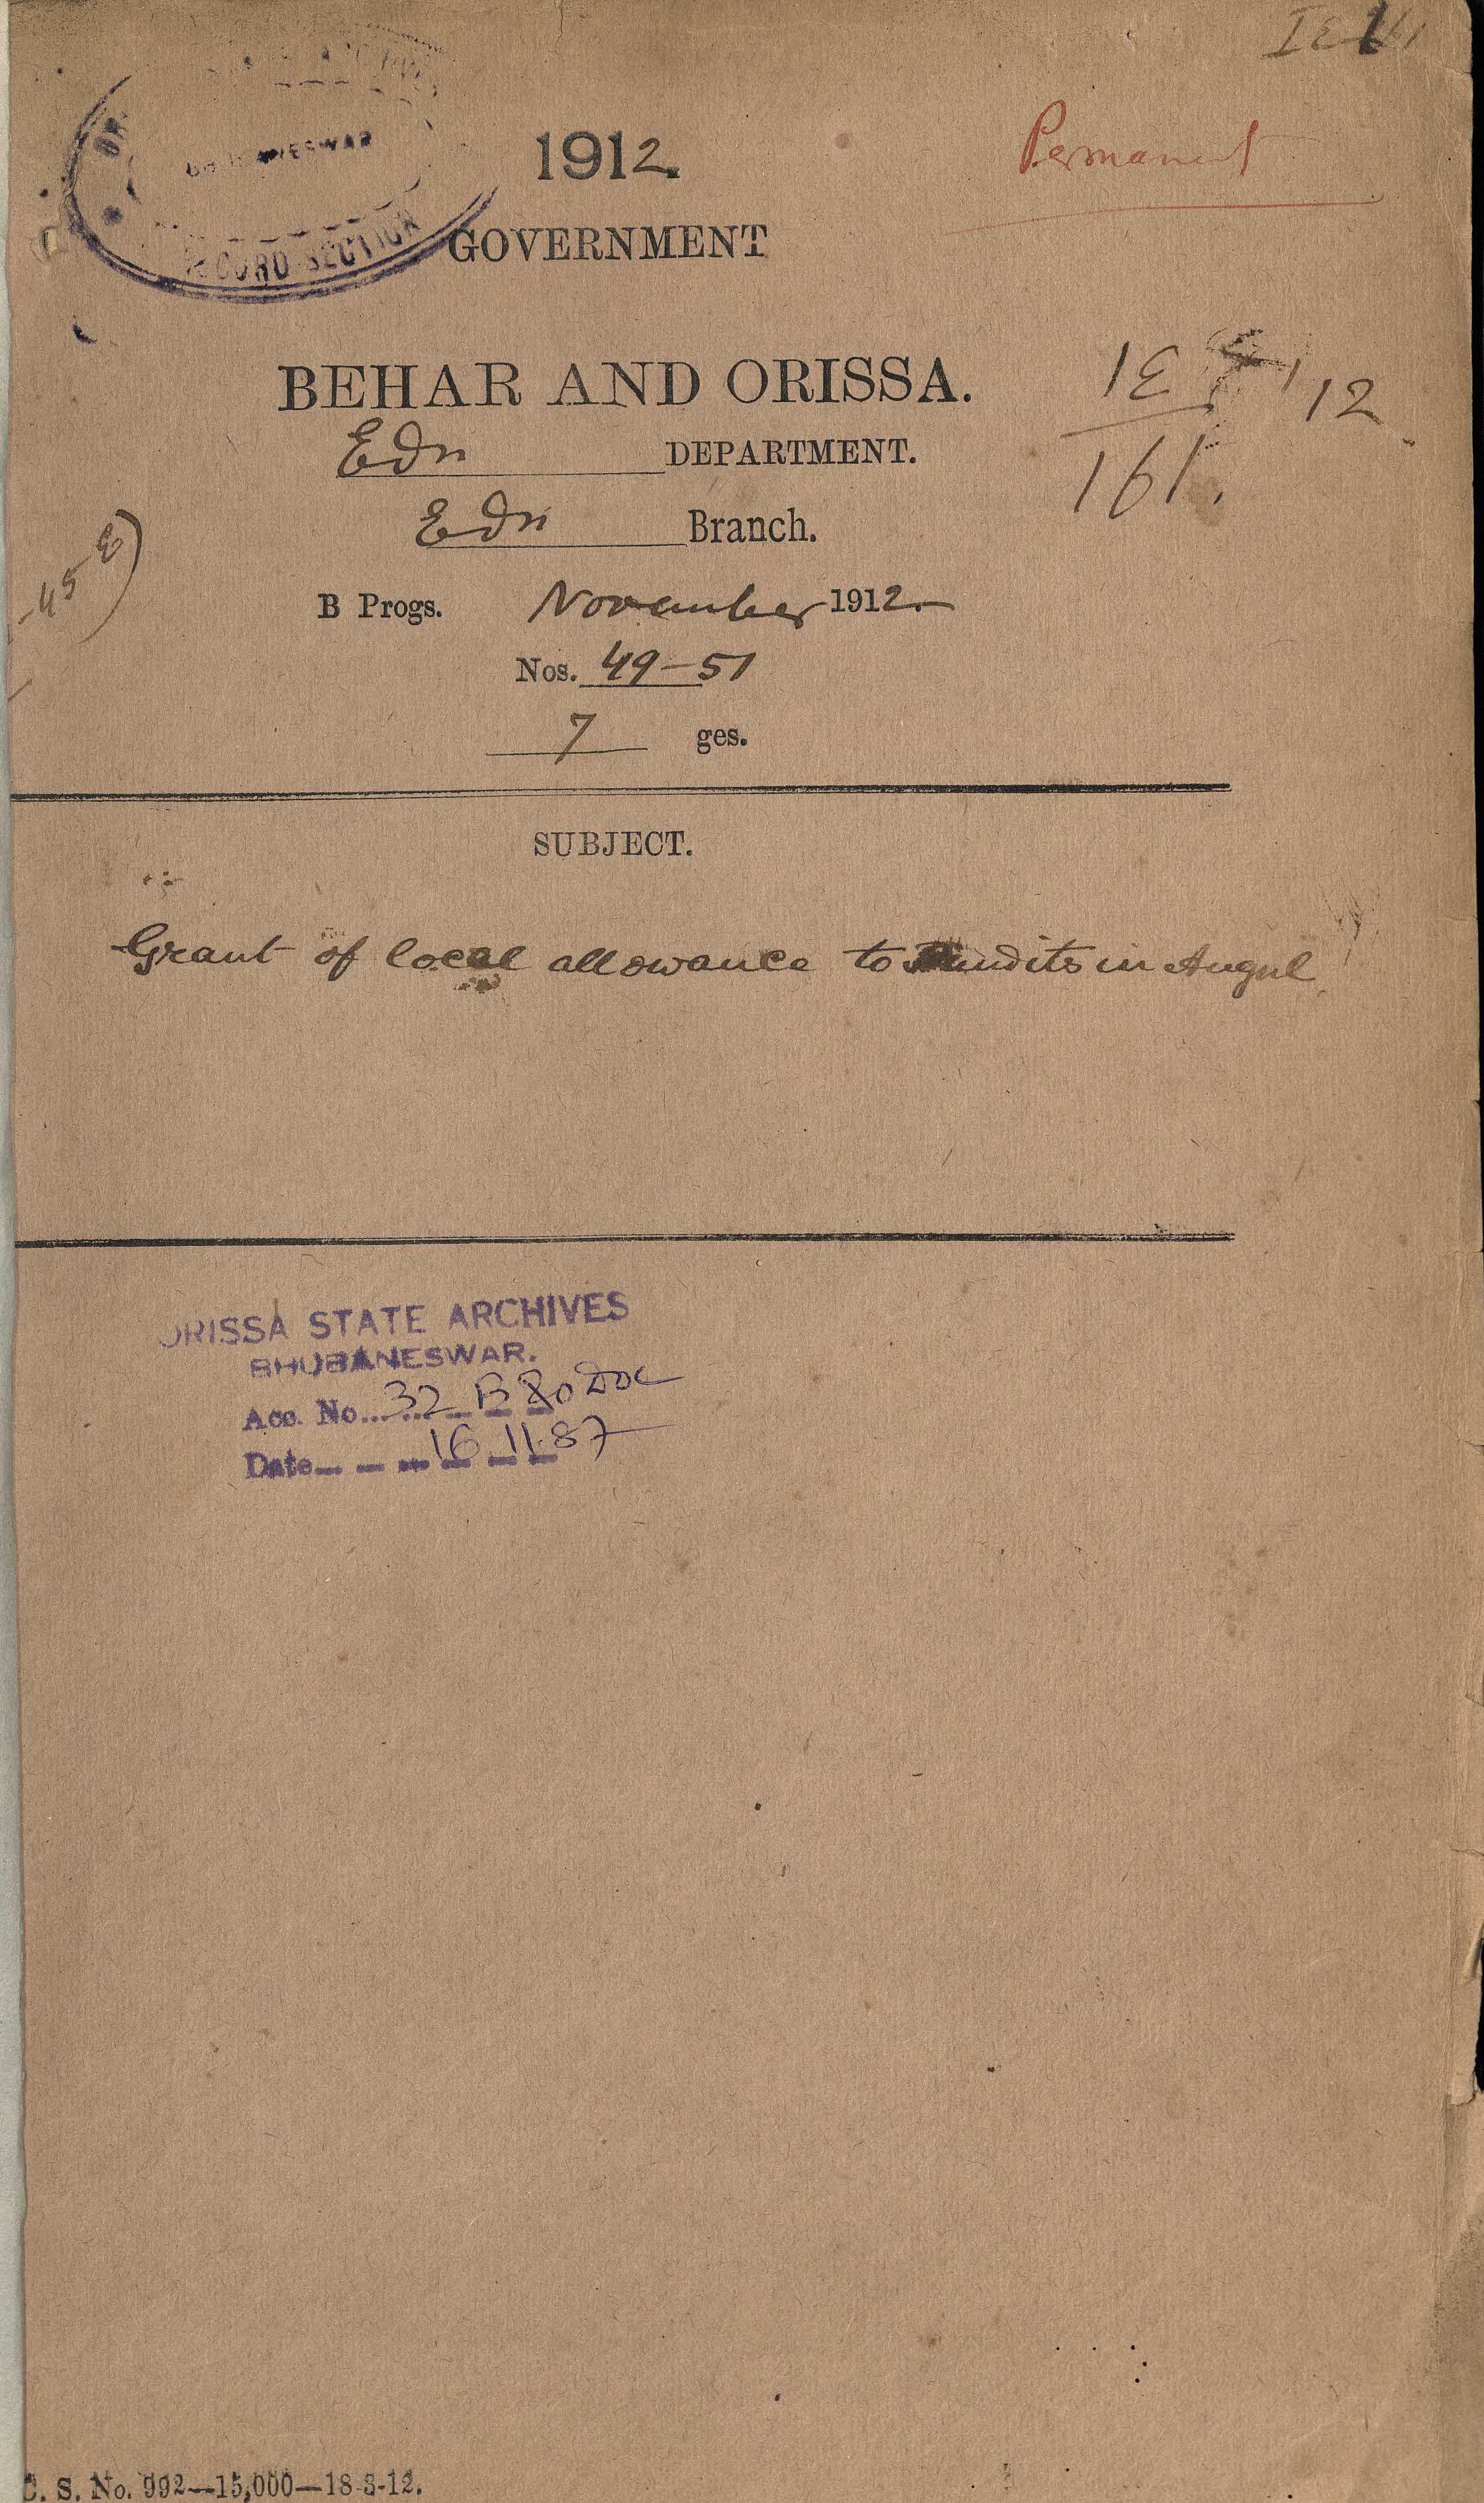 1912.
Permanent
RECORD SECTION
GOVERNMENT
BEHAR AND ORISSA.
Edn DEPARTMENT.
Edn Branch.
1E
'12
161.
B Progs. November 1912.
Nos. 49-51
7 ges.
SUBJECT.
Grant of local allowance to Pundits in Angul
ORISSA STATE ARCHIVES
BHUBANESWAR.
Acc. No... 32 B & O Doc
Date 16.11.87
C. S. No. 992—15,000—18-3-12.